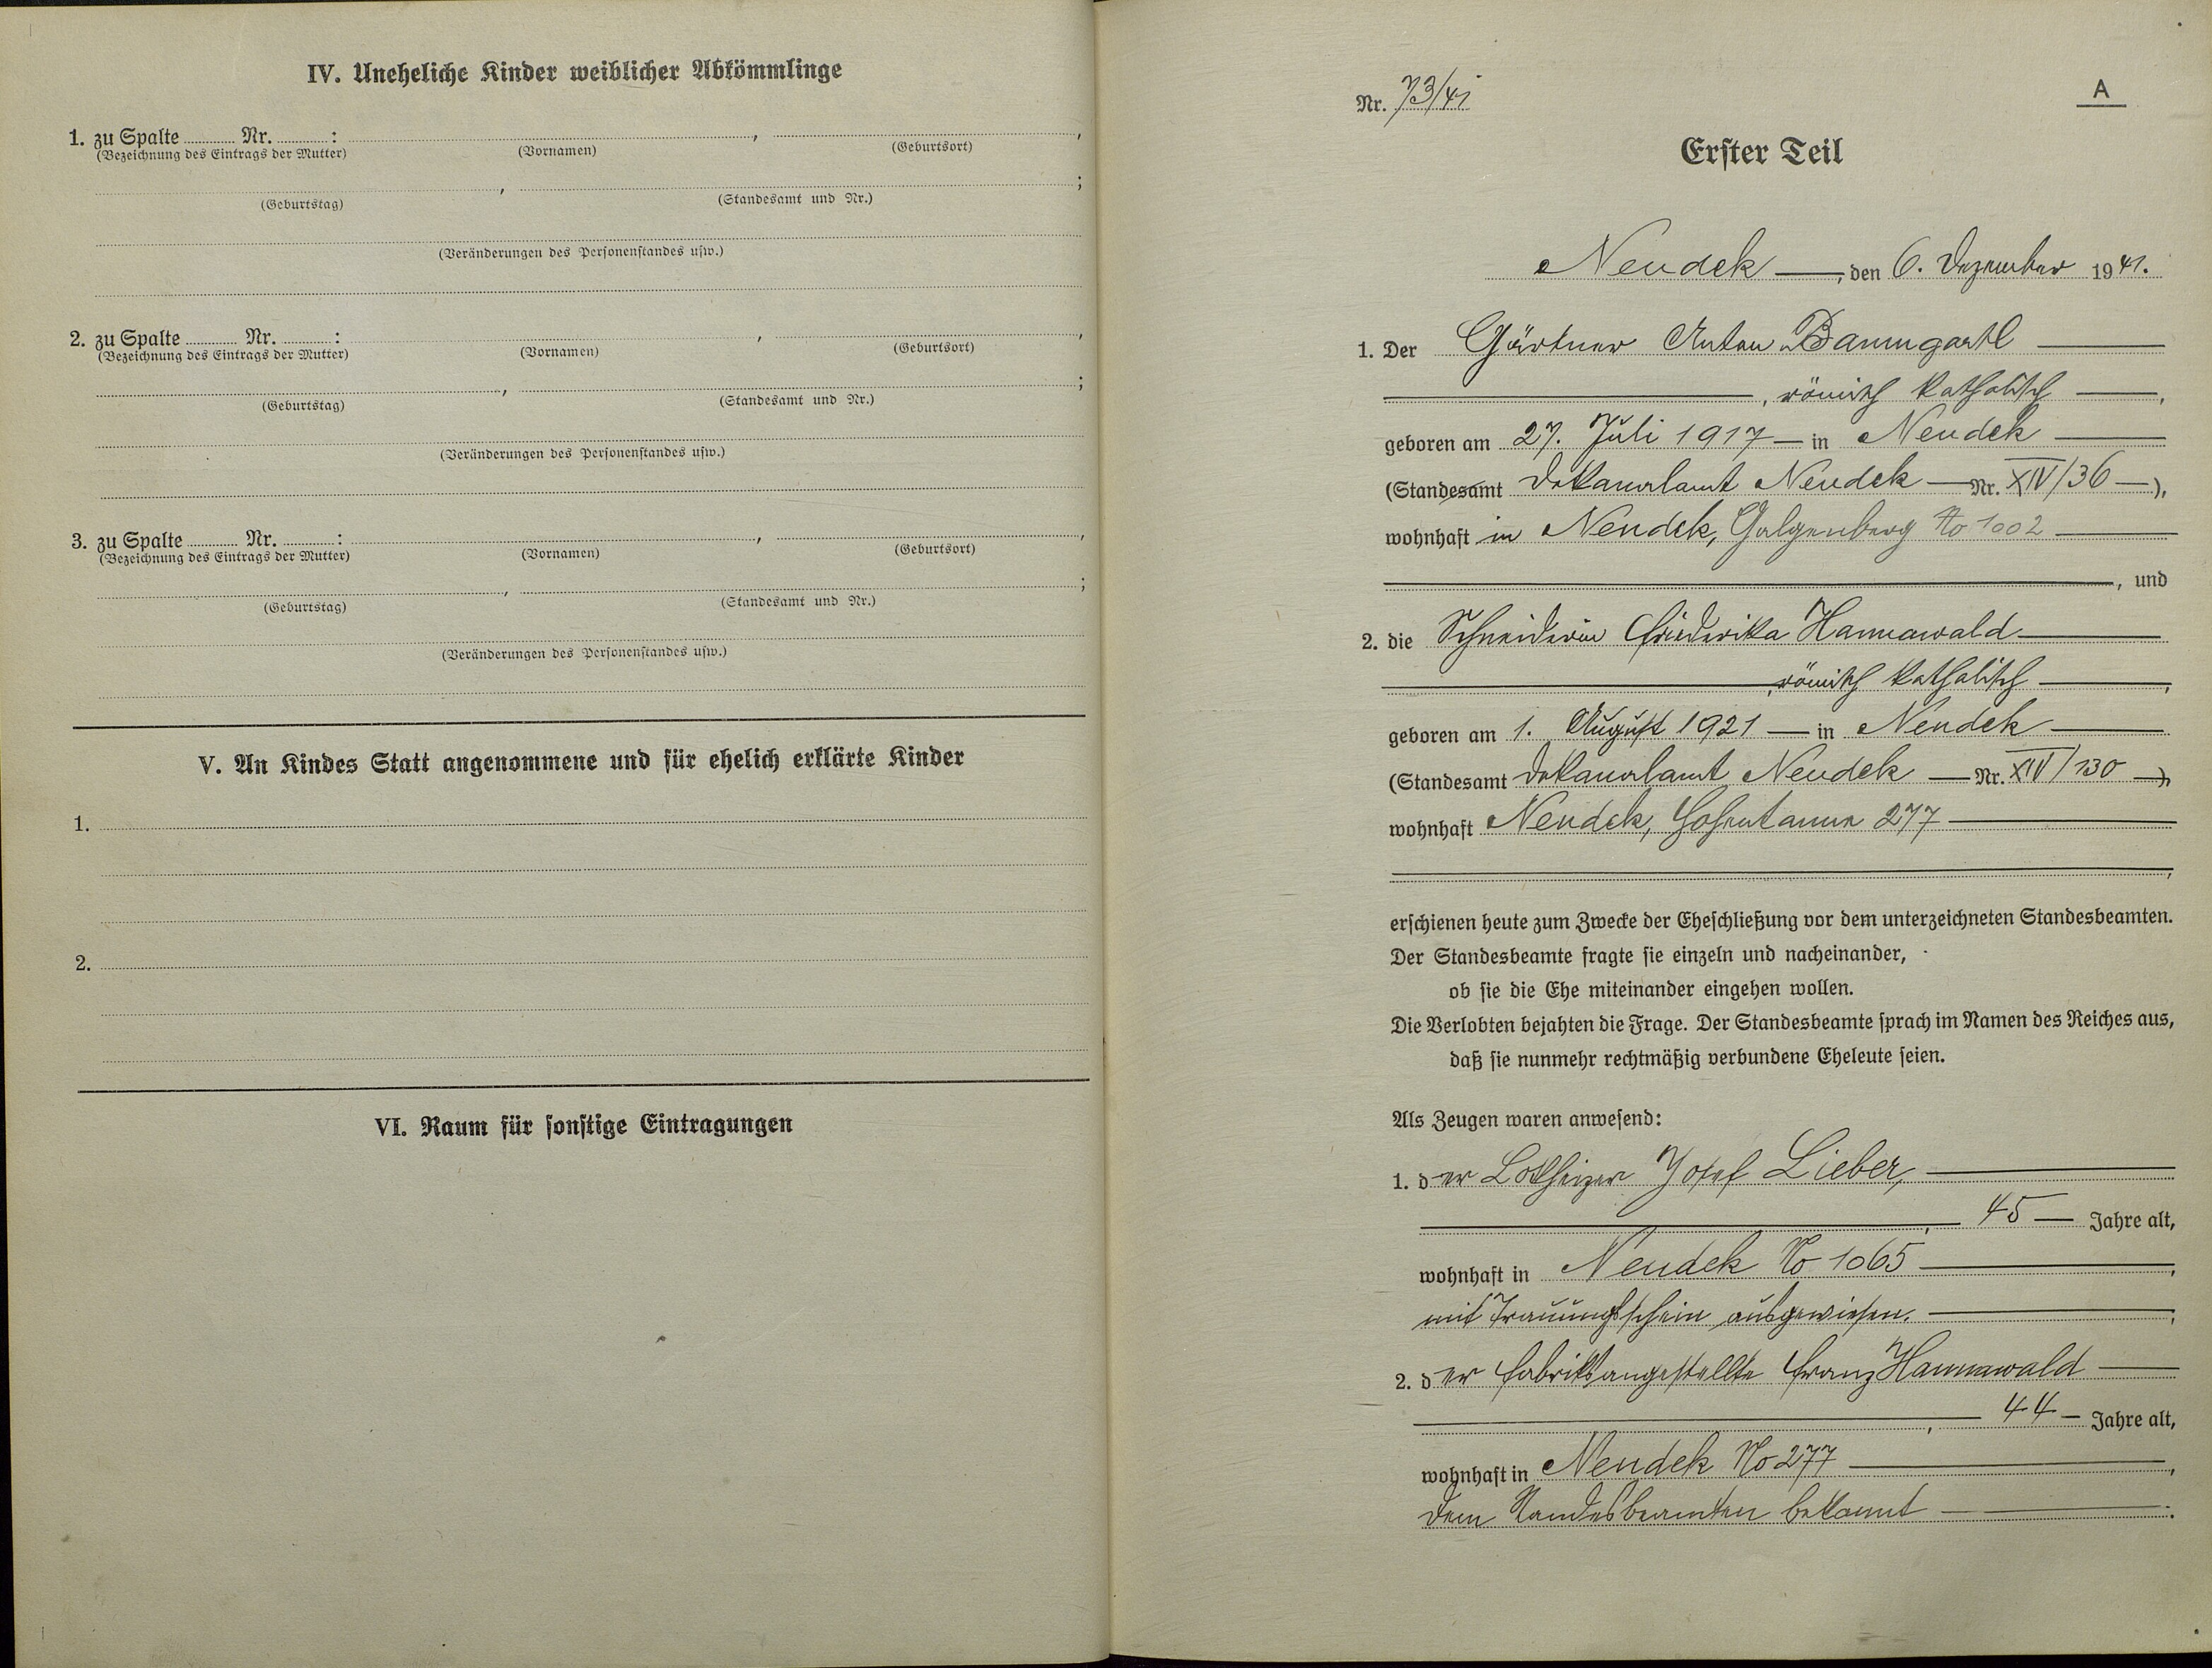 IV. Uneheliche Kinder weiblicher Abkömmlinge
1. zu Spalte Nr. : , ,
(Bezeichnung des Eintrags der Mutter) (Vornamen) (Geburtsort)
, ;
(Geburtstag) (Standesamt und Nr.)
(Veränderungen des Personenstandes usw.)
2. zu Spalte Nr. : , ,
(Bezeichnung des Eintrags der Mutter) (Vornamen) (Geburtsort)
, ;
(Geburtstag) (Standesamt und Nr.)
(Veränderungen des Personenstandes usw.)
3. zu Spalte Nr. : , ,
(Bezeichnung des Eintrags der Mutter) (Vornamen) (Geburtsort)
, ;
(Geburtstag) (Standesamt und Nr.)
(Veränderungen des Personenstandes usw.)
V. An Kindes Statt angenommene und für ehelich erklärte Kinder
1.
2.
VI. Raum für sonstige Eintragungen
Nr. 73/41
A
Erster Teil
Neudek —, den 6. Dezember 1941.
1. Der Gärtner Anton Baumgartl —
—, römisch katholisch —,
geboren am 27. Juli 1917 — in Neudek —
(Standesamt Dekanalamt Neudek — Nr. XIV/36 —),
wohnhaft in Neudek, Galgenberg No 1002 —
—, und
2. die Schneiderin Friederika Hannawald —
—, römisch katholisch —,
geboren am 1. August 1921 — in Neudek —
(Standesamt Dekanalamt Neudek — Nr. XIV/130 —),
wohnhaft Neudek, Hohentanne 277 —
—,
erschienen heute zum Zwecke der Eheschließung vor dem unterzeichneten Standesbeamten.
Der Standesbeamte fragte sie einzeln und nacheinander,
ob sie die Ehe miteinander eingehen wollen.
Die Verlobten bejahten die Frage. Der Standesbeamte sprach im Namen des Reiches aus,
daß sie nunmehr rechtmäßig verbundene Eheleute seien.
Als Zeugen waren anwesend:
1. der Lokheizer Josef Lieber, —
—, 45 — Jahre alt,
wohnhaft in Neudek No 1065 —,
mit Trauungsschein ausgewiesen. —;
2. der Fabriksangestellte Franz Hannawald —
—, 44 — Jahre alt,
wohnhaft in Neudek No 277 —,
dem Standesbeamten bekannt —.